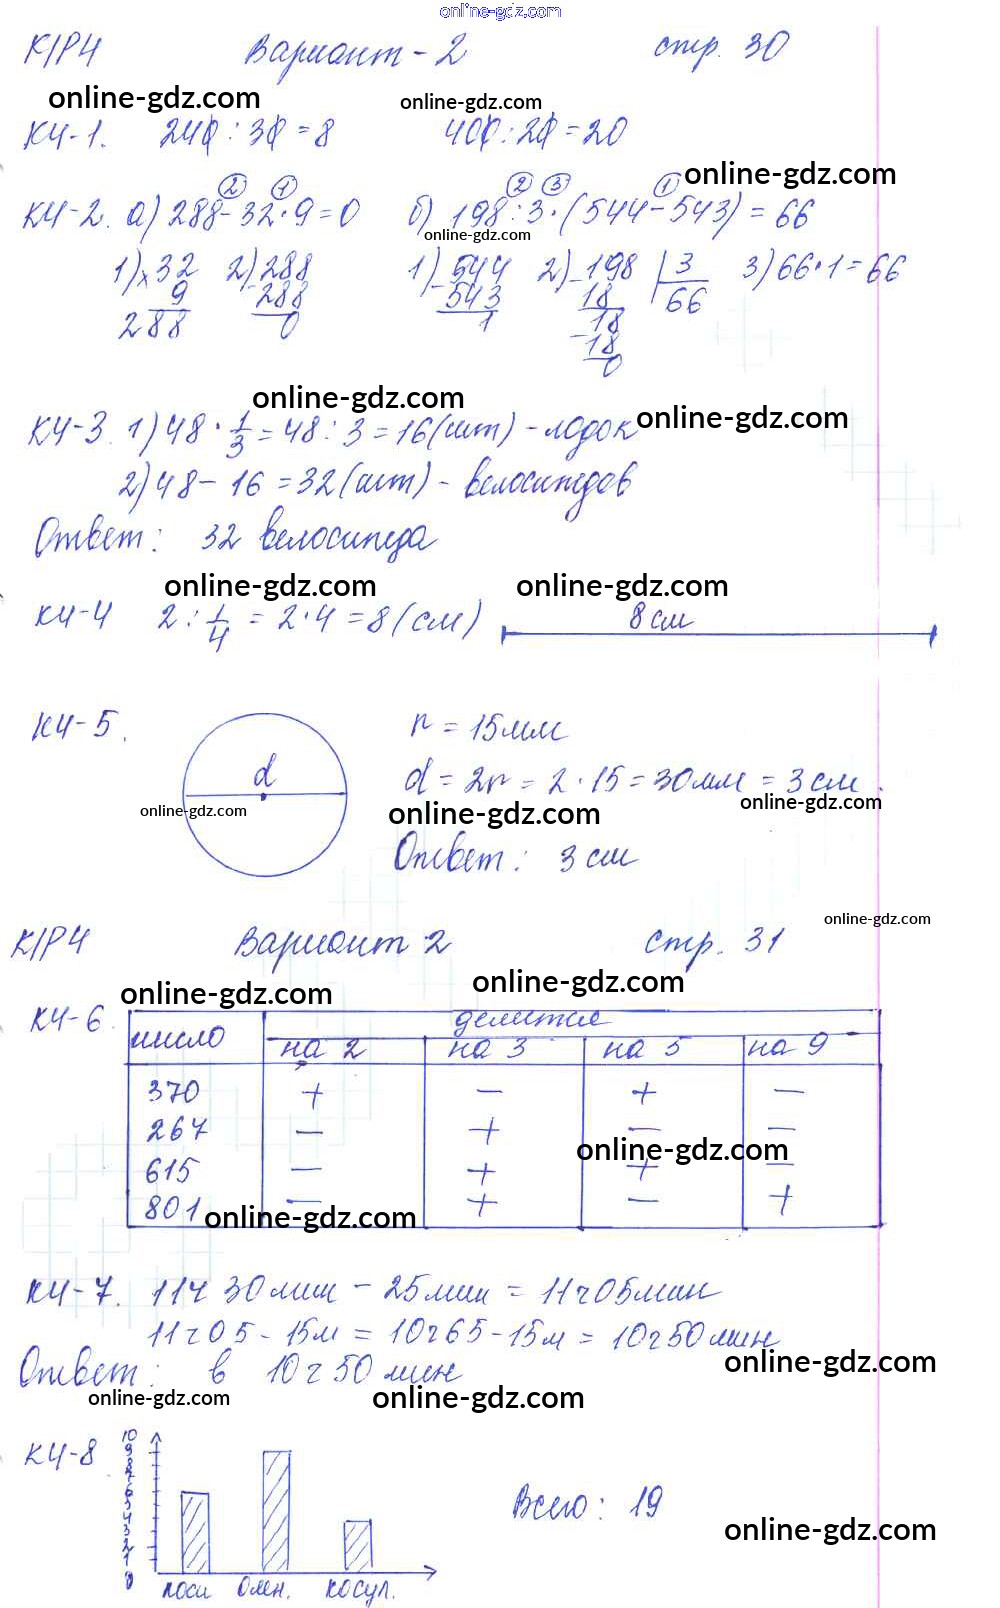 online-gdz.com
К/Р4 Вариант - 2 стр. 30
online-gdz.com online-gdz.com
К4-1. 240 : 30 = 8 400 : 20 = 20
online-gdz.com
2 1 2 3 1
К4-2. а) 288 - 32 · 9 = 0 б) 198 : 3 · (544 - 543) = 66
online-gdz.com
1) × 32 2) 288 1) 544 2) 198 | 3 3) 66 · 1 = 66
9 - 288 - 543 - 18 66
288 0 1 18
- 18
0
online-gdz.com online-gdz.com
К4-3. 1) 48 · 1/3 = 48 : 3 = 16 (шт) - лодок
2) 48 - 16 = 32 (шт) - велосипедов
Ответ: 32 велосипеда
online-gdz.com online-gdz.com
К4-4 2 : 1/4 = 2 · 4 = 8 (см) 8 см
К4-5. r = 15 мм
d d = 2r = 2 · 15 = 30 мм = 3 см.
online-gdz.com online-gdz.com online-gdz.com
Ответ: 3 см
online-gdz.com
К/Р4 Вариант 2 стр. 31
online-gdz.com online-gdz.com
К4-6. число делится
на 2 на 3 на 5 на 9
370 + - + -
267 - + - -
online-gdz.com
615 - + + -
801 - + - +
online-gdz.com
К4-7. 11ч 30 мин - 25 мин = 11ч 05 мин
11ч 05 - 15м = 10ч 65 - 15м = 10ч 50 мин
online-gdz.com
Ответ: в 10ч 50 мин
online-gdz.com online-gdz.com
К4-8 10
9
8
7
6
5
4
3
2
1
0
Всего: 19
online-gdz.com
лоси олен. косул.